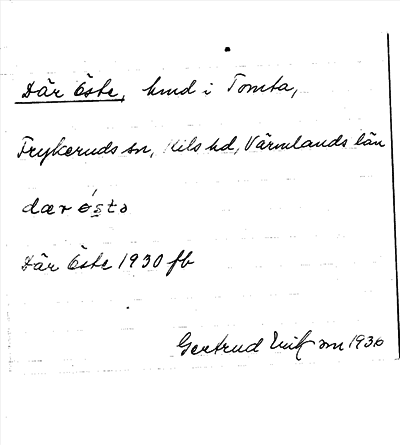 Där Öste, hmd i Tomta,
Frykeruds sn, Kils hd, Värmlands län
dær ö́stə
Där Öste 1930 fb
Gertrud Eriksson 1936